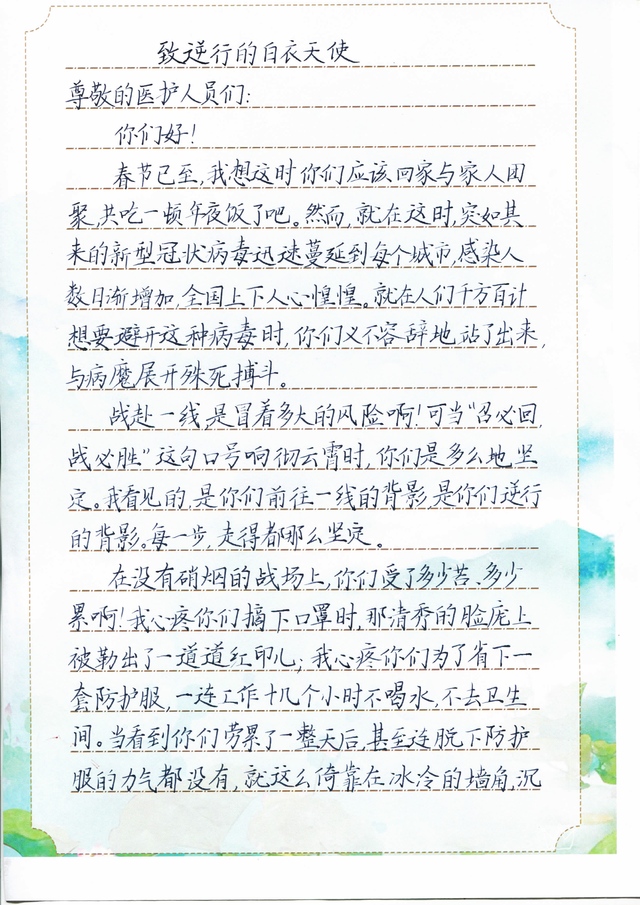 致逆行的白衣天使
尊敬的医护人员们:
你们好!
春节已至,我想这时你们应该回家与家人团
聚,共吃一顿年夜饭了吧。然而,就在这时,突如其
来的新型冠状病毒迅速蔓延到每个城市,感染人
数日渐增加,全国上下人心惶惶。就在人们千方百计
想要避开这种病毒时,你们义不容辞地站了出来,
与病魔展开殊死搏斗。
战赴一线,是冒着多大的风险啊!可当“召必回,
战必胜”这句口号响彻云霄时,你们是多么地坚
定。我看见的,是你们前往一线的背影,是你们逆行
的背影。每一步,走得都那么坚定。
在没有硝烟的战场上,你们受了多少苦、多少
累啊!我心疼你们摘下口罩时,那清秀的脸庞上
被勒出了一道道红印儿;我心疼你们为了省下一
套防护服,一连工作十几个小时不喝水,不去卫生
间。当看到你们劳累了一整天后,甚至连脱下防护
服的力气都没有,就这么倚靠在冰冷的墙角,沉